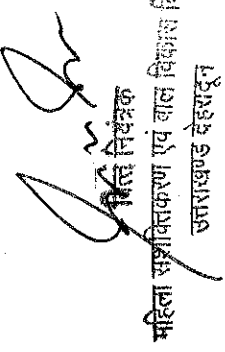 वित्त नियंत्रक
महिला सशक्तिकरण एवं बाल विकास वि
उत्तराखण्ड देहरादून